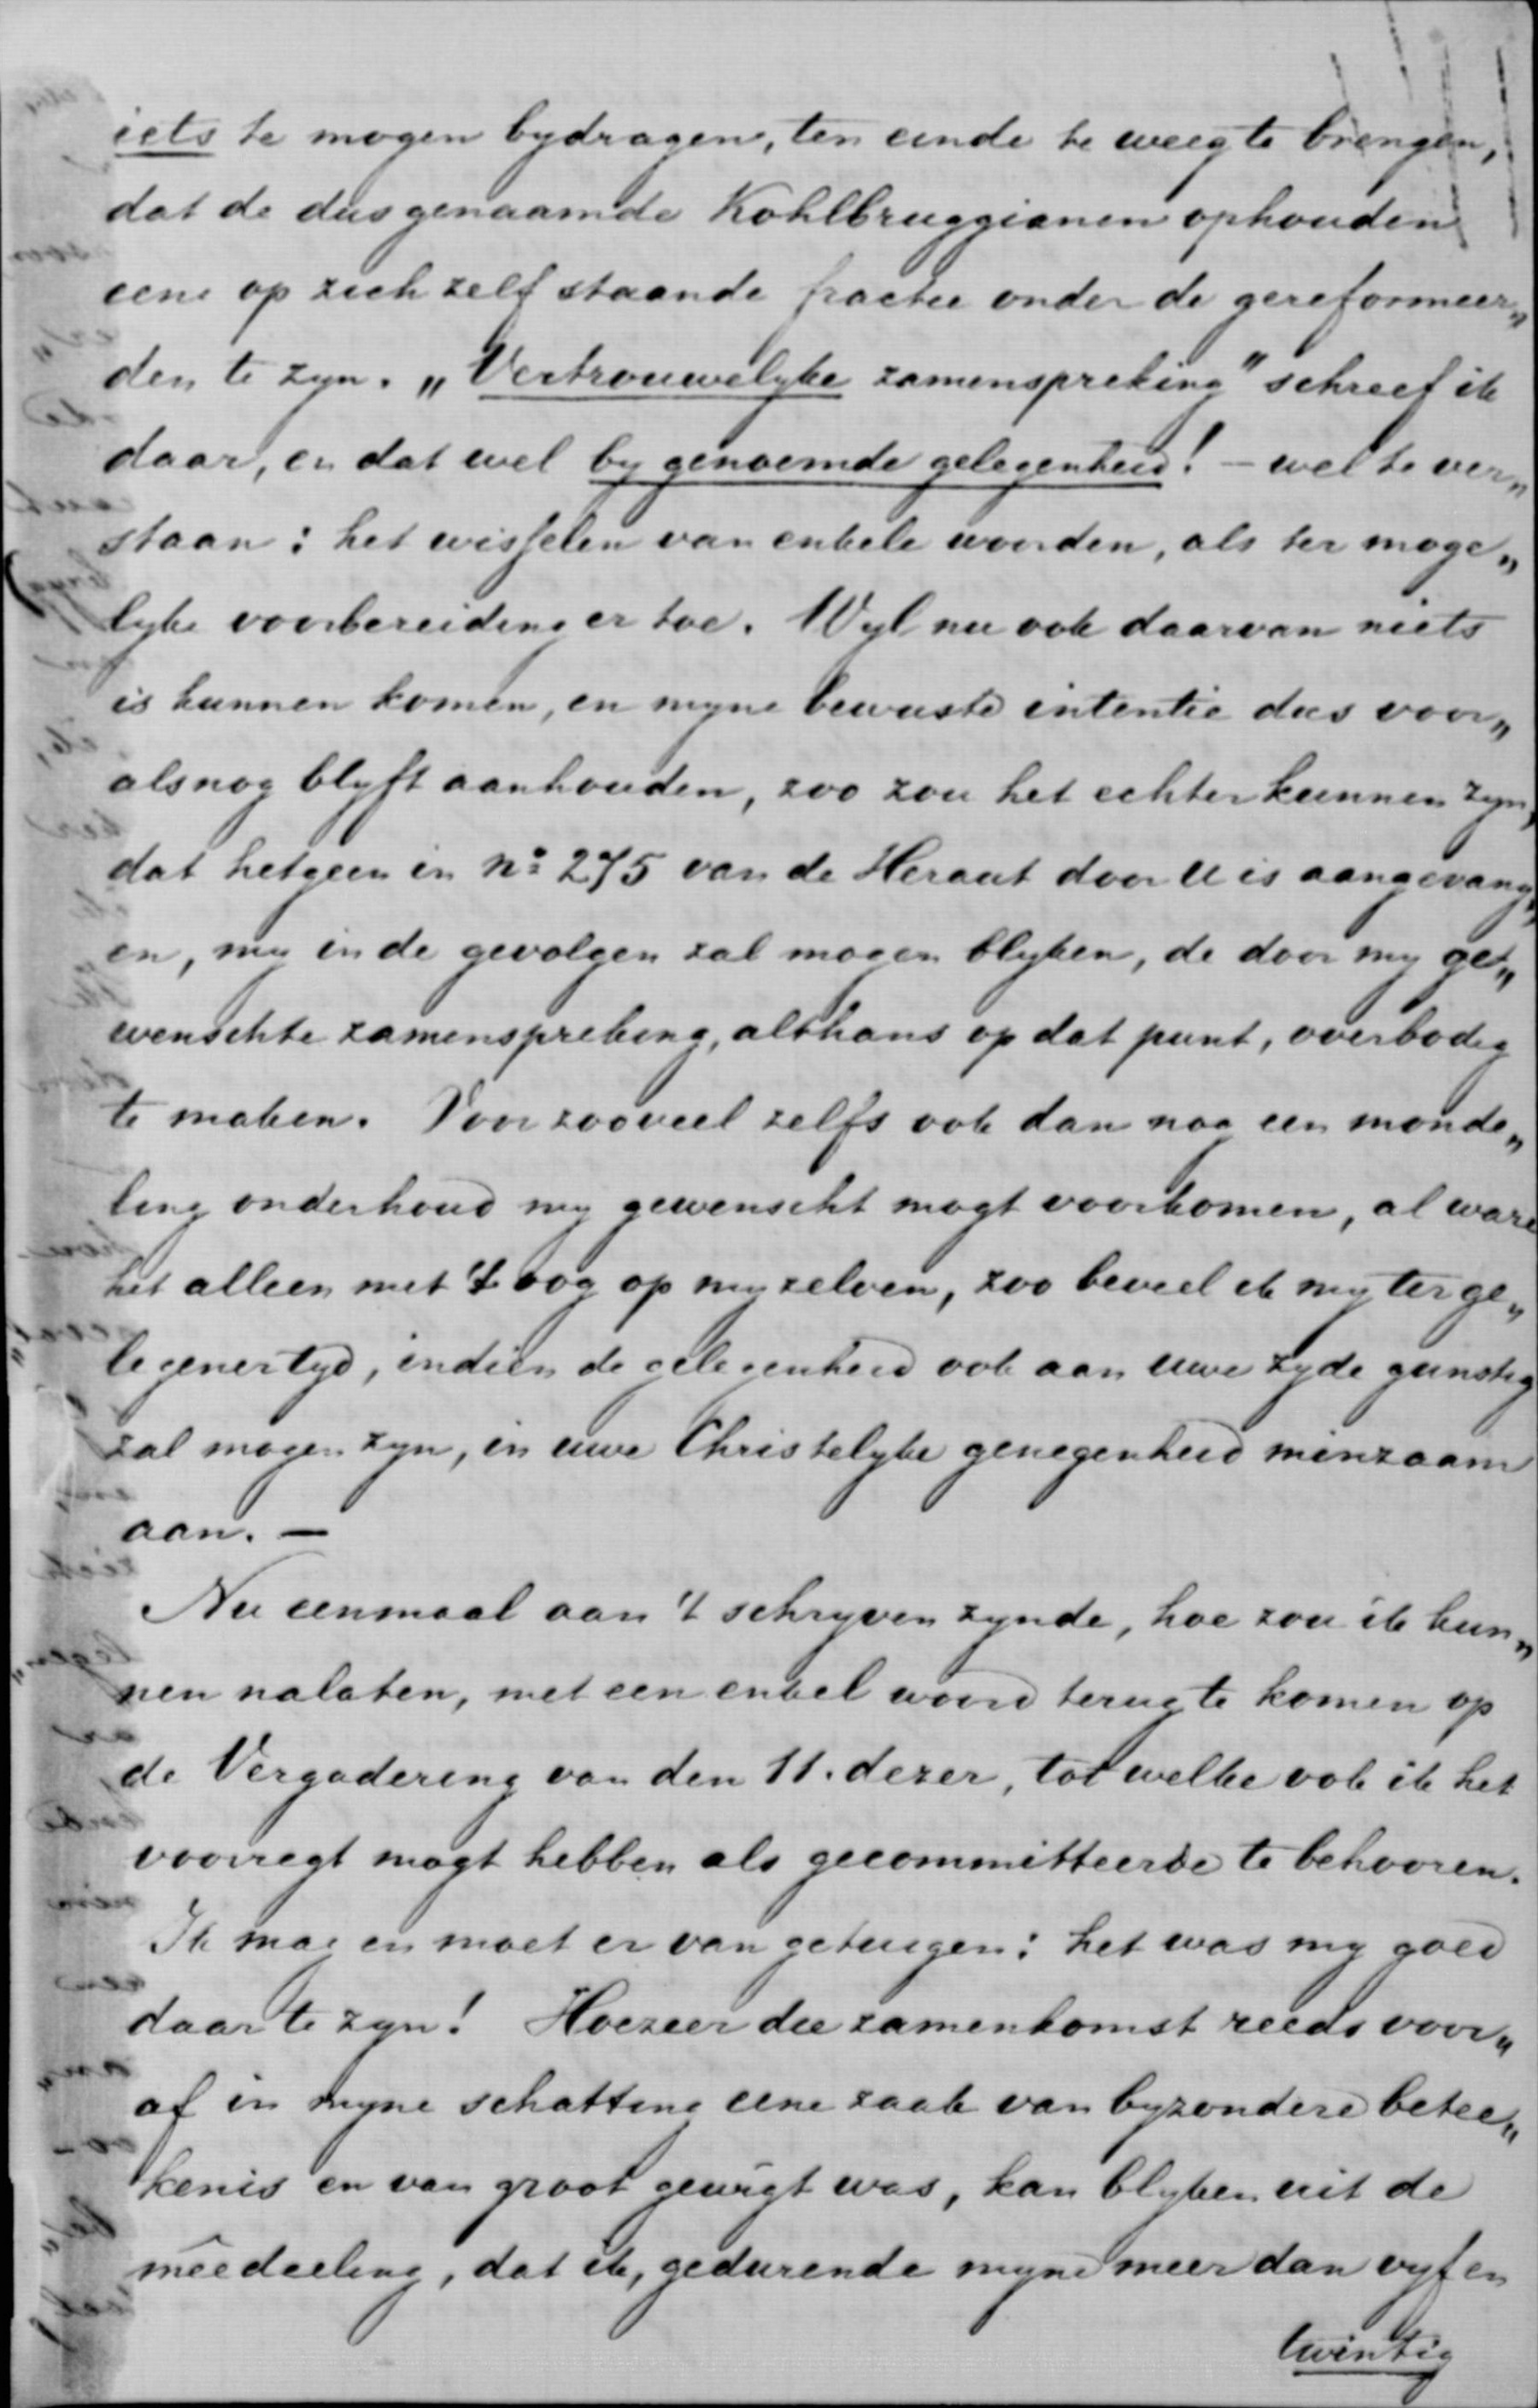 iets te mogen bydragen, ten einde te weeg te brengen,
dat de dusgenaamde Kohlbruggianen ophouden
eene op zich zelf staande fractie onder de gereformeer„
den te zyn. „Vertrouwelyke zamenspreking" schreef ik
daar, en dat wel by genoemde gelegenheid! – wel te ver„
staan: het wisselen van enkele woorden, als ter moge„
lyke voorbereiding er toe. Wyl nu ook daarvan niets
is kunnen komen, en myne bewuste intentie dus voor„
alsnog blyft aanhouden, zoo zou het echter kunnen zyn,
dat hetgeen in No 275 van de Heraut door U is aangevang„
en, my in de gevolgen zal mogen blyken, de door my ge„
wenschte zamenspreking, althans op dat punt, overbodig
te maken. Voor zooveel zelfs ook dan nog een monde„
ling onderhoud my gewenscht mogt voorkomen, al ware
het alleen met 't oog op my zelven, zoo beveel ik my ter ge„
legenertyd, indien de gelegenheid ook aan uwe zyde gunstig
zal mogen zyn, in uwe Christelyke genegenheid minzaam
aan. –
Nu eenmaal aan 't schryven zynde, hoe zou ik kun„
nen nalaten, met een enkel woord terug te komen op
de Vergadering van den 11. dezer, tot welke ook ik het
voorregt mogt hebben als gecommitteerde te behooren.
Ik mag en moet er van getuigen: het was my goed
daar te zyn! Hoezeer die zamenkomst reeds voor„
af in myne schatting eene zaak van byzondere betee„
kenis en van groot gewigt was, kan blyken uit de
mêedeeling, dat ik, gedurende myne meer dan vyf en
twintig